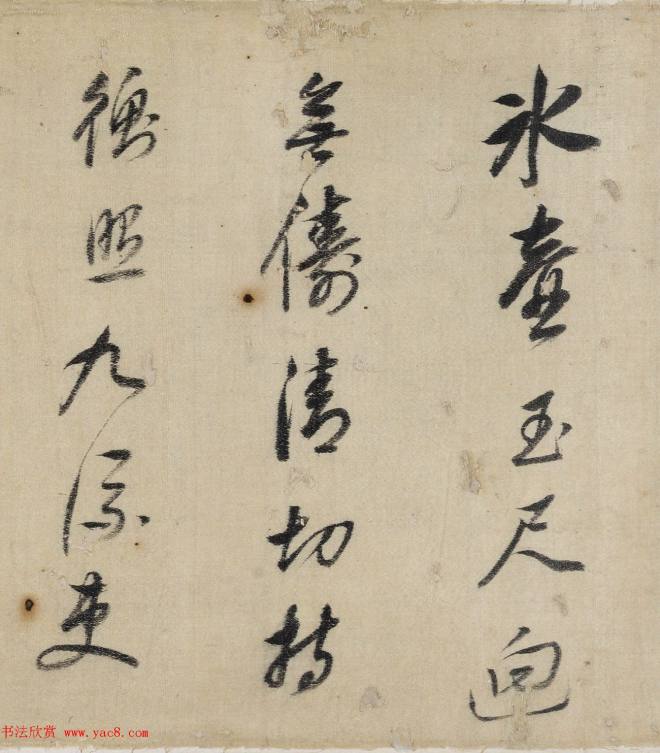 冰壺玉尺逈
無儔清切持
衡照九流吏
书法欣赏 www.yac8.com